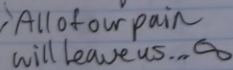 All of our pain
will leave us... ∞